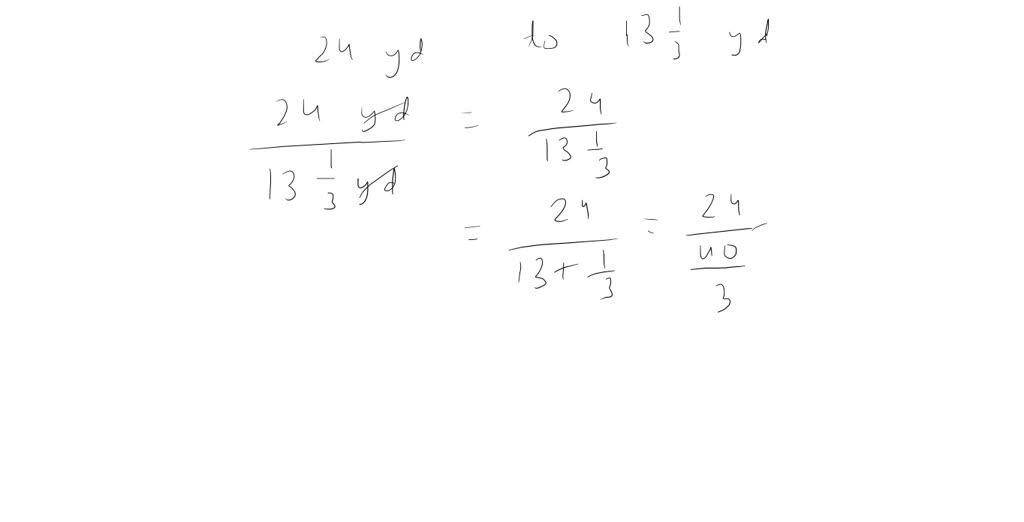 24 yd to 13 1/3 yd
24 yd / 13 1/3 yd = 24 / 13 1/3
= 24 / 13 + 1/3 = 24 / 40/3